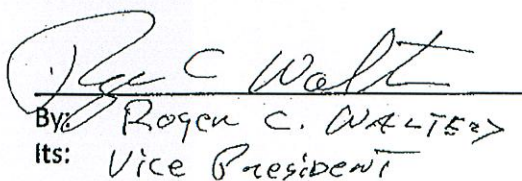 Roger C Walters
By: Roger C. WALTERS
Its: Vice President